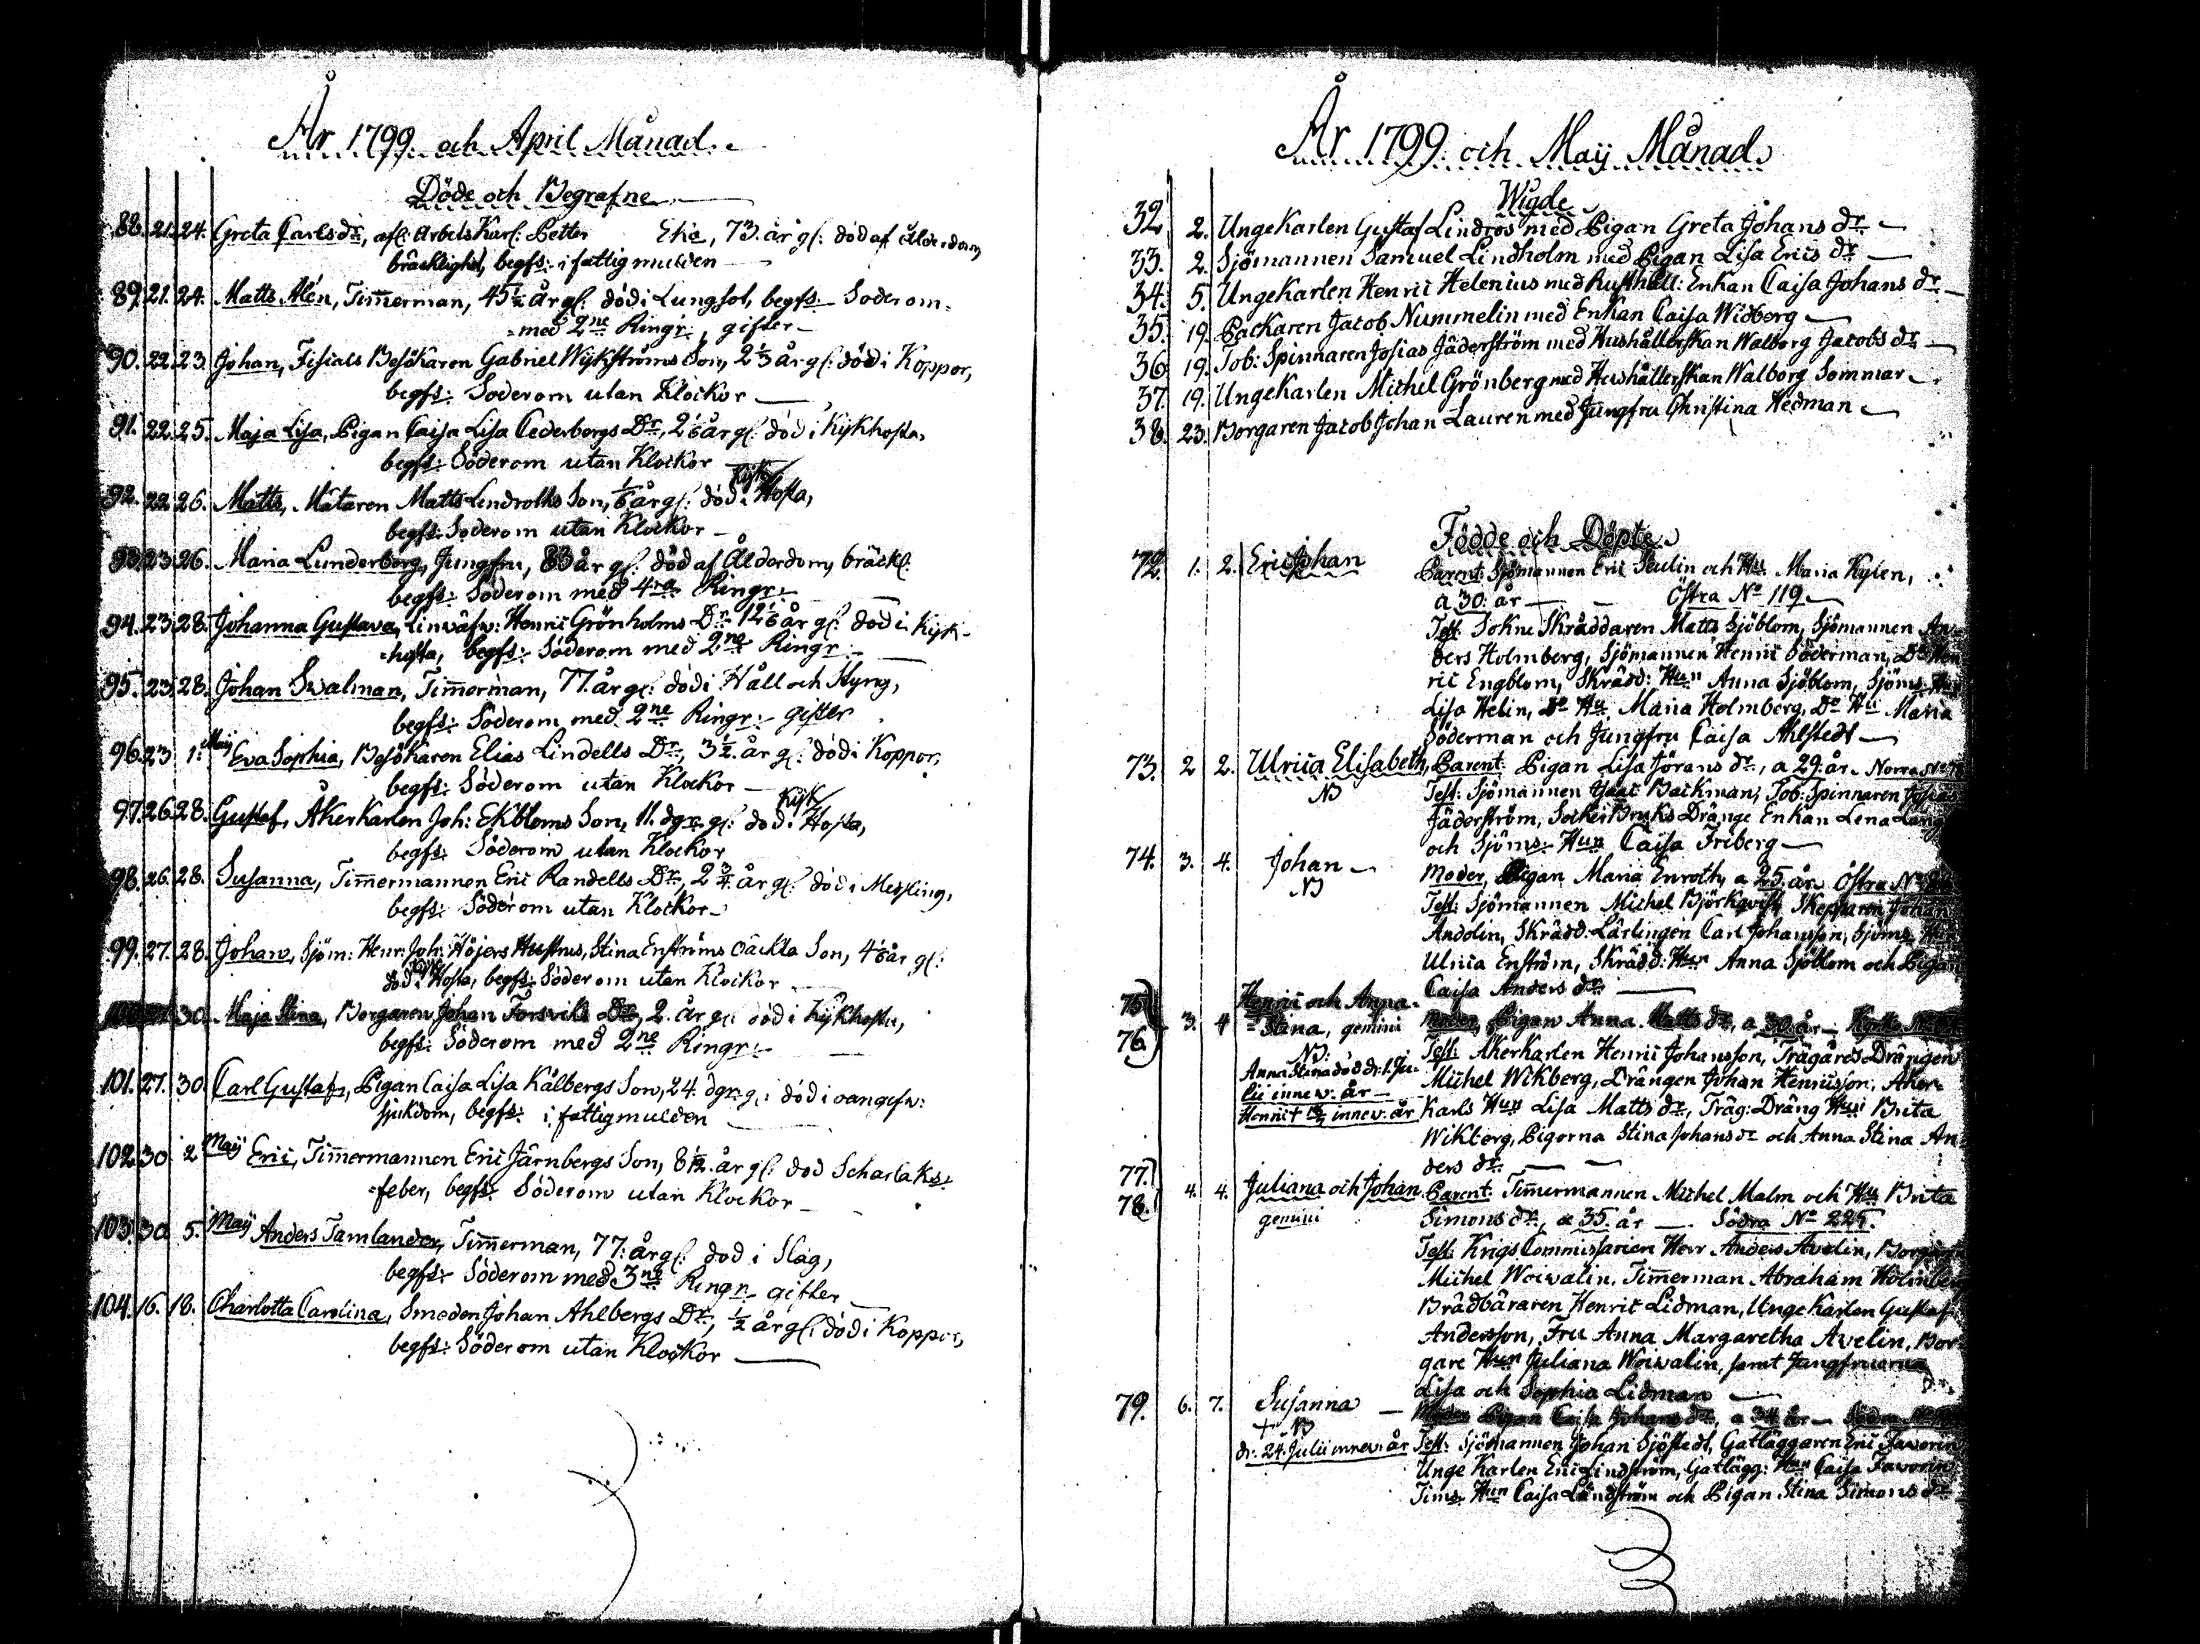 År 1799. och April Månad.
Döde och Begrafne
88. 21. 24. Greta Carls dr, afl: Arbets Karl: Petter Ekie, 73. år gl: död af Ålderdom
bräcklighet, begfs: i fattigmulden
89. 21. 24. Matts Alén, Timmerman, 45 1/2 år gl: död i Lungsot, begfs: Söderom
med 2ne Ringr:, gifter
90. 22. 23. Johan, Fiskals Besökaren Gabriel Wykströms Son, 2 1/3 år gl: död i Koppor,
begfs: Söderom utan Klockor
91. 22. 25. Maja Lisa, Pigan Caisa Lisa Cederbergs Dr, 2 1/6 år gl: död i Kykhosta,
begfs: Söderom utan Klockor
92. 22. 26. Matts, Mätaren Matts Lindroths Son, 1/6 år gl: död i Kyk Hosta,
begfs: Söderom utan Klockor
93. 23. 26. Maria Lunderberg, Jungfru, 83 år gl: död af Ålderdom, bräckl:
begfs: Söderom med 4ra Ringr:
94. 23. 28. Johanna Gustava, Linwäfw: Henric Grönholms Dr 12 1/6 år gl: död i Kyk-
hosta, begfs: Söderom med 2ne Ringr:
95. 23. 28. Johan Swalman, Timmerman, 77. år gl: död i Håll och Styng,
begfs: Söderom med 2ne Ringr: gifter
96. 23 1. Maij Eva Sophia, Besökaren Elias Lindells Dr, 3 1/2. år gl: död i Koppor,
begfs: Söderom utan Klockor
97. 26. 28. Gustaf, Åkerkarlen Joh: Ekbloms Son, 11. dgr gl: död i Kyk Hosta,
begfs: Söderom utan Klockor
98. 26. 28. Susanna, Timmermannen Eric Randells Dr, 2 3/4 år gl: död i Messling,
begfs: Söderom utan Klockor
99. 27. 28. Johan, Sjöm: Henr: Joh: Höjers Hustrus, Stina Enströms oäckta Son, 4 1/6 år gl:
död i Kyk Hosta, begfs: Söderom utan Klockor
30. Maja Stina, Borgaren Johan Forsviks Dr, 2. år gl: död i Kykhosta,
begfs: Söderom med 2ne Ringr:
101. 27. 30 Carl Gustaf, Pigan Caisa Lisa Kålbergs Son, 24. dgr gl: död i oangifw:
sjukdom, begfs: i fattigmulden
102. 30 2 Maij Eric, Timmermannen Eric Järnbergs Son, 8 1/12. år gl: död Scharlaks-
feber, begfs: Söderom utan Klockor
103. 30 5. Maij Anders Tamlander, Timmerman, 77: år gl: död i Slag,
begfs: Söderom med 3ne Ringr: gifter
104. 16. 18. Charlotta Carolina, Smeden Johan Ahlbergs Dr, 1/2 år gl: död i Koppor,
begfs: Söderom utan Klockor
År 1799. och Maij Månad
Wigde
32 2. Unge Karlen Gustaf Lindros med Pigan Greta Johans dr
33. 2. Sjömannen Samuel Lindholm med Pigan Lisa Erics dr
34. 5. Unge Karlen Henric Helenius med Rusthåll: Enkan Caisa Johans dr
35. 19. Packaren Jacob Nummelin med Enkan Caisa Widberg
36 19. Tob: Spinnaren Josias Jäderström med Hushållerskan Walborg Jacobs dr
37. 19. Unge Karlen Michel Grönberg med Hushållerskan Walborg Sommar
38. 23. Borgaren Jacob Johan Lauren med Jungfru Christina Hedman
Födde och Döpte
72. 1. 2. Eric Johan Parent: Sjömannen Eric Paulin och Hu Maria Kylen,
a 30: år Östra No 119
Test: Sokne Skräddaren Matts Sjöblom, Sjömannen An-
ders Holmberg, Sjömannen Henric Söderman, Do Hen
ric Engblom, Skrädd: Hun Anna Sjöblom, Sjöms: Hun
Lisa Helin, Do Hu Maria Holmberg, Do Hu Maria
Söderman och Jungfru Caisa Ahlstedt
73. 2 2. Ulrica Elisabeth, Parent: Pigan Lisa Jörans dr, a 29: år Norra No
NB Test: Sjömannen Isaac Backman, Tob: Spinnaren Josias
Jäderström, Socker Bruks Dränge Enkan Lena Lång
och Sjöms: Hun Caisa Friberg
74. 3. 4. Johan Moder, Pigan Maria Enroth, a 25. år Östra No
NB Test: Sjömannen Michel Björkqvist, Skepparen Johan
Andolin, Skrädd: Lärlingen Carl Johansson, Sjöms: Hu
Ulrica Enström, Skrädd: Hun Anna Sjöblom och Pigan
Caisa Anders dr
75) 76) 3. 4 Henric och Anna
Stina, gemini Moder, Pigan Anna Matts dr, a 30 år
NB: Test: Åkerkarlen Henric Johansson, Trägårds Drängen
Anna Stina död d: 1. Ju- Michel Wikberg, Drängen Johan Henricsson, Åker-
lii innew: år Karls Hun Lisa Matts dr, Träg: Dräng Hun Brita
Henric + innew: år Wikberg, Pigorna Stina Johans dr och Anna Stina An-
ders dr
77.) 78.) 4. 4. Juliana och Johan Parent: Timmermannen Michel Malm och Hu Brita
gemini Simons dr, a 35. år Södra No 225.
Test: Krigs Commissarien Herr Anders Avelin, Borgaren
Michel Woiwalin, Timmerman Abraham Holmberg
Brädbäraren Henric Lidman, Unge Karlen Gustaf
Andersson, Fru Anna Margaretha Avelin, Bor-
gare Hun Juliana Woiwalin, samt Jungfruerna
Lisa och Sophia Lidman
79. 6. 7. Susanna Moder Pigan Caisa Johans dr, a 34 år Södra No
+ NB Test: Sjömannen Johan Sjöstedt, Gatläggaren Eric Favorin
d: 24. Julii innew: år Unge Karlen Eric Lindström, Gatlägg: Hun Caisa Favorin
Tims: Hun Caisa Lindström och Pigan Stina Simons dr